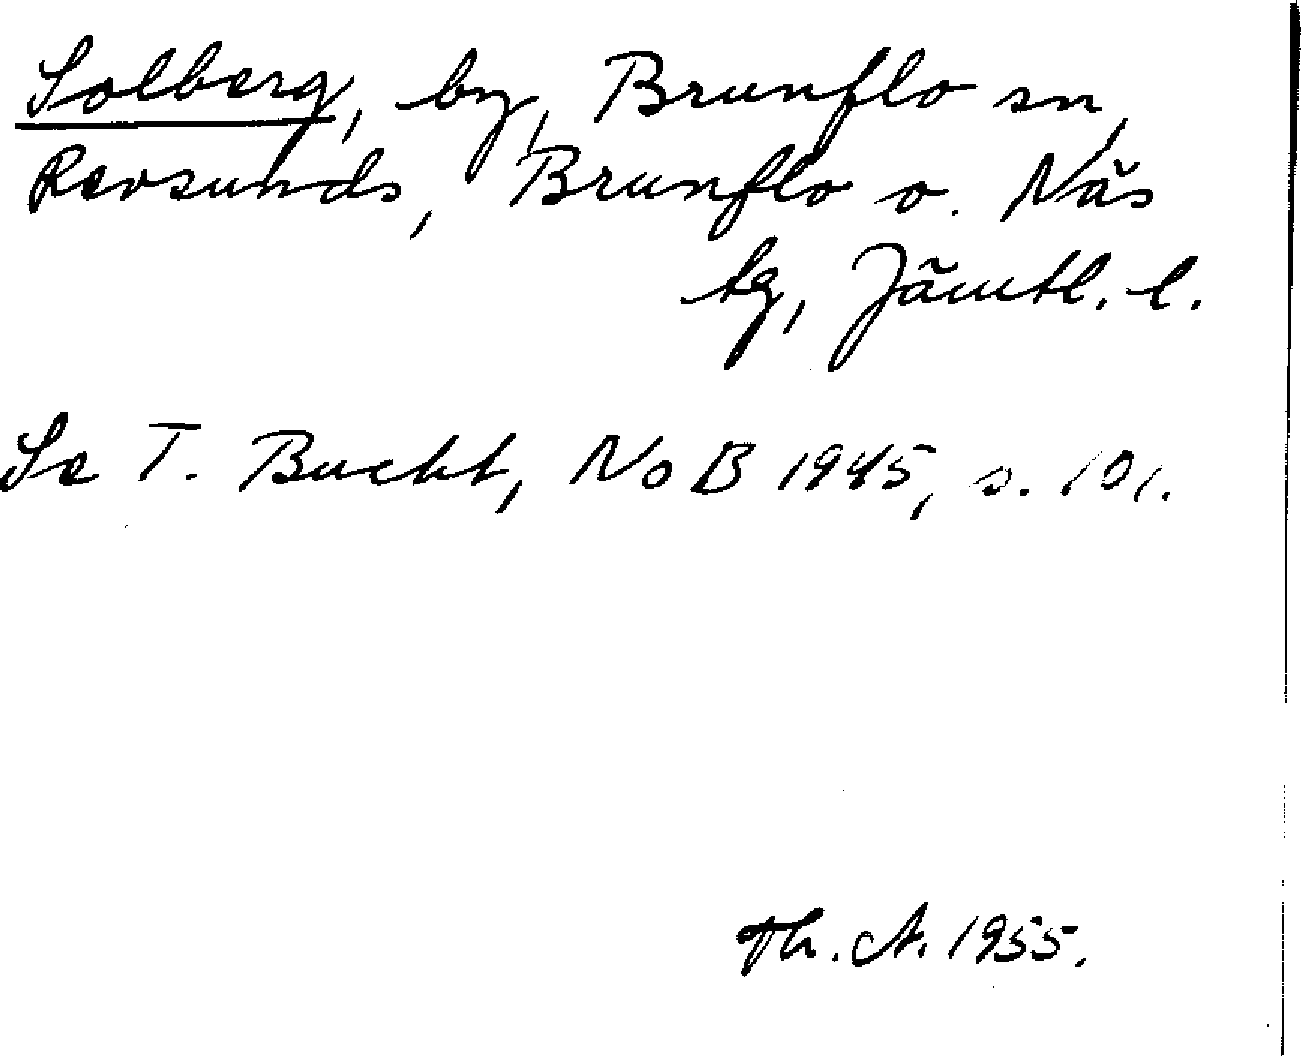 Solberg, by, Brunflo sn,
Revsunds, Brunflo o. Näs
tg, Jämtl. l.
Se T. Bucht, NoB 1945, s. 101.
Th. A. 1955.